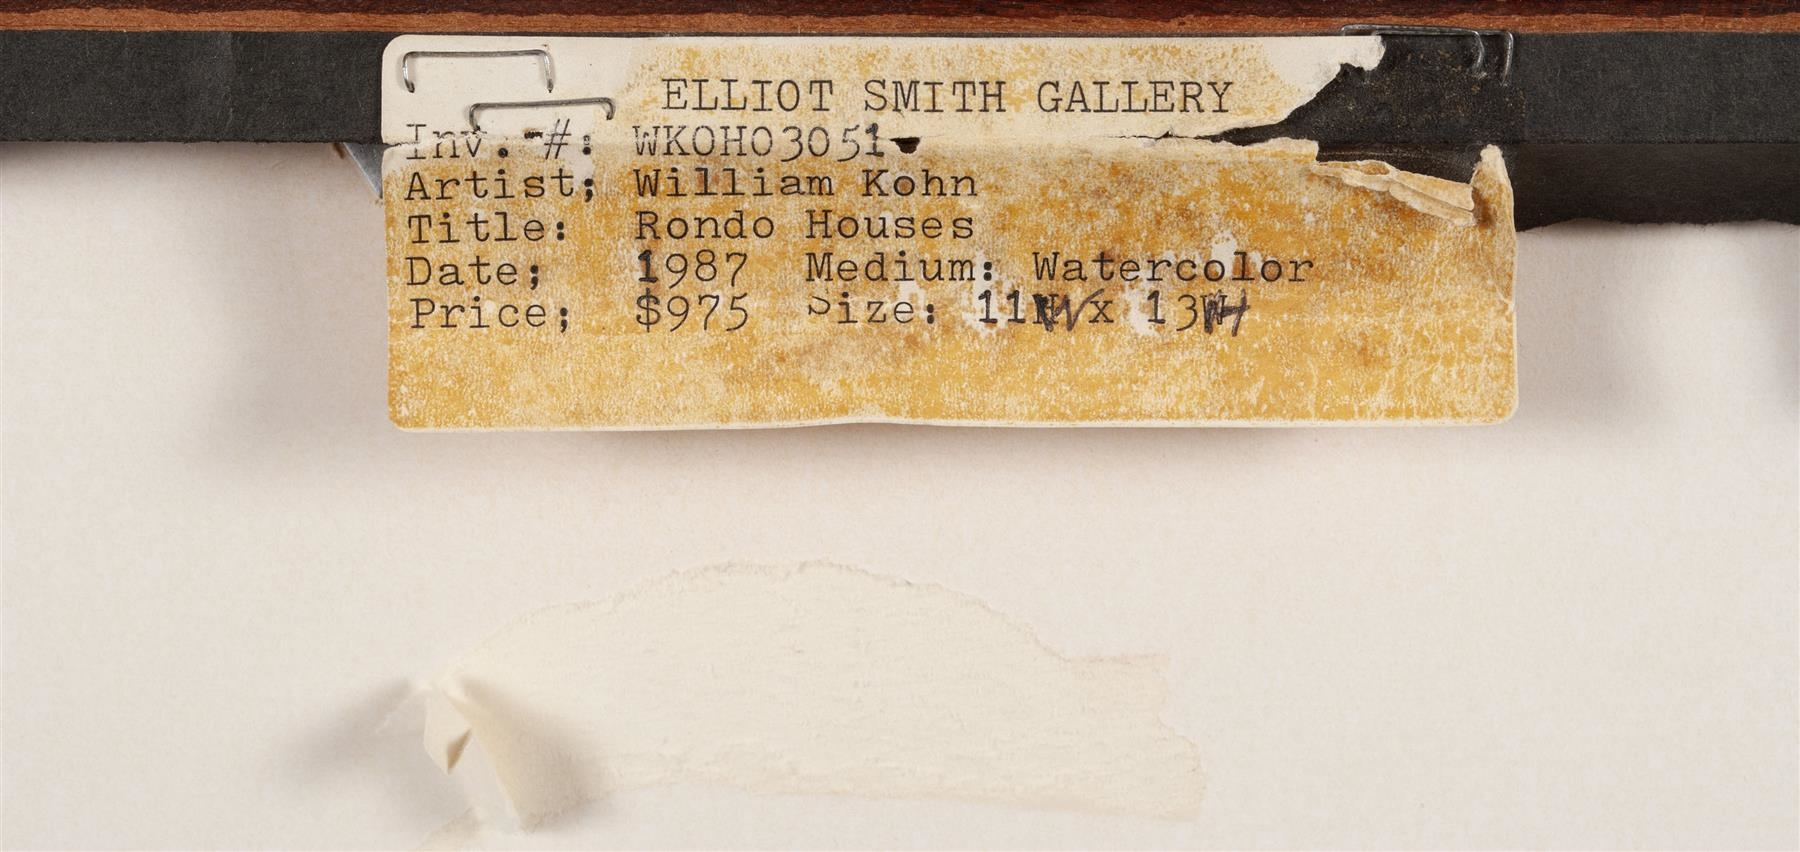 ELLIOT SMITH GALLERY
Inv. #: WKOHO3051
Artist; William Kohn
Title: Rondo Houses
Date; 1987 Medium: Watercolor
Price; $975 Size: 11W x 13H